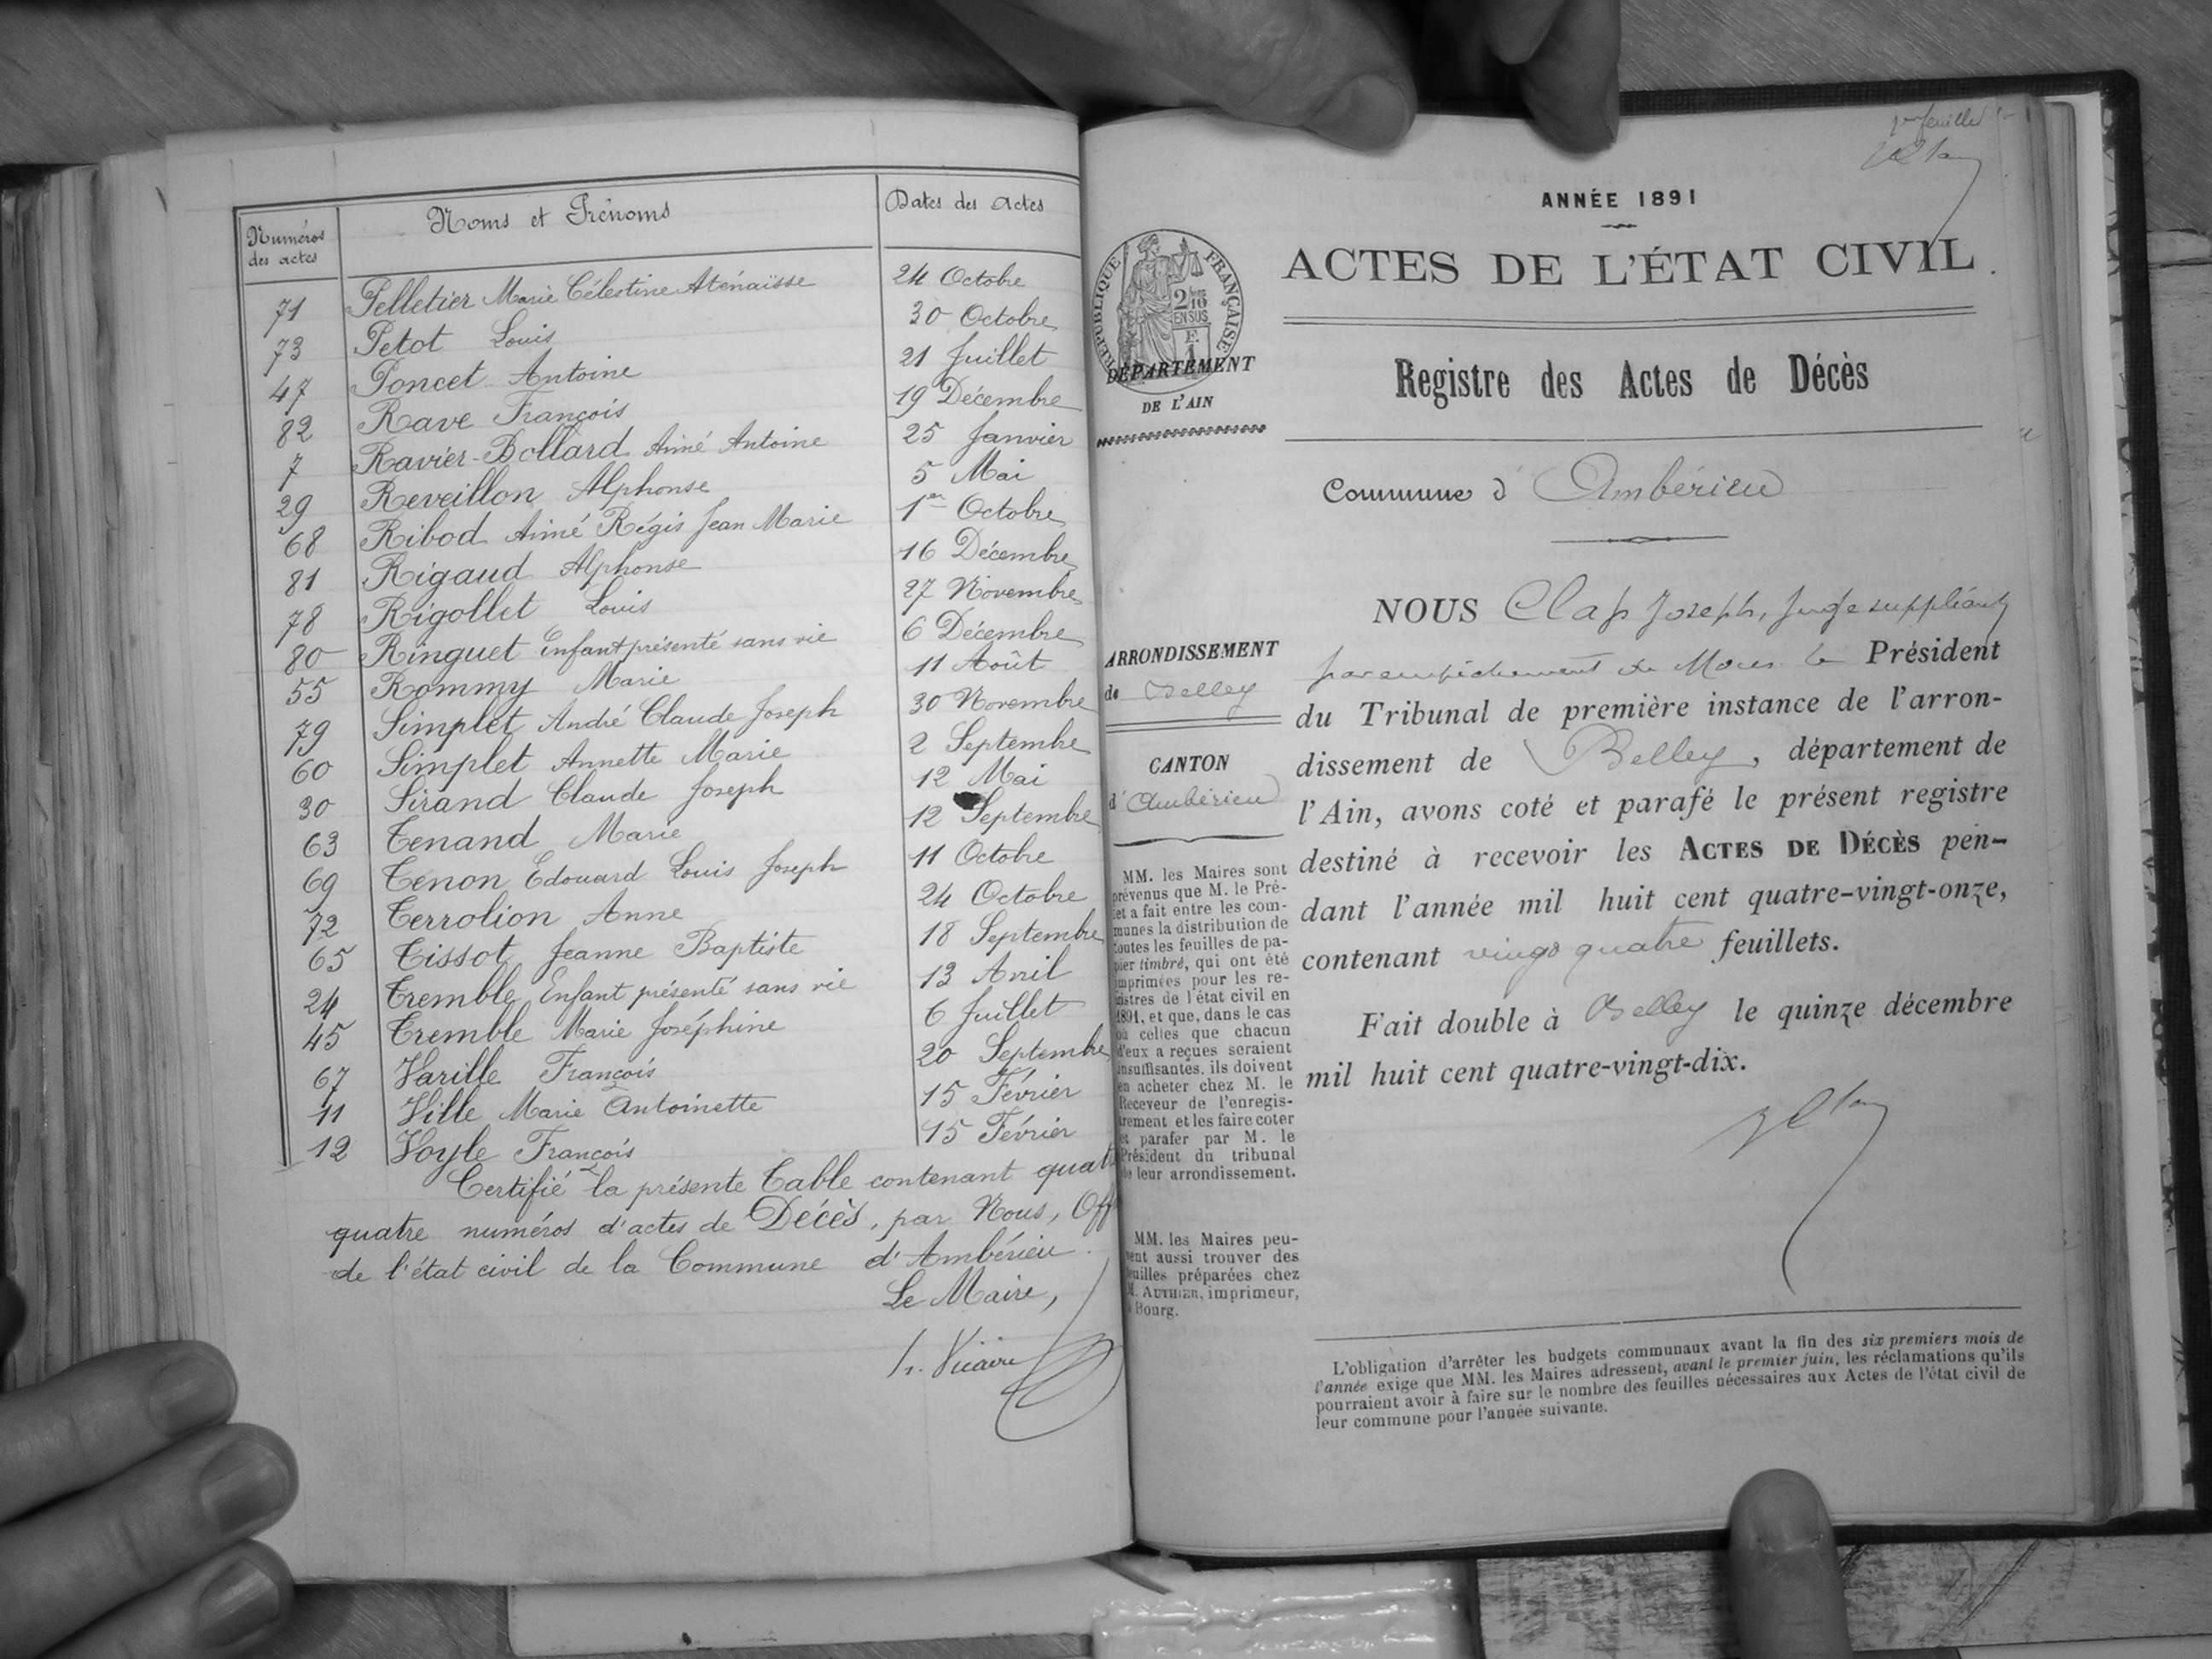 Numéros des actes | Noms et Prénoms | Dates des Actes
71 Pelletier Marie Célestine Aténaïsse 24 Octobre
73 Petot Louis 30 Octobre
47 Poncet Antoine 21 Juillet
82 Rave François 19 Décembre
7 Ravier-Bollard Aimé Antoine 25 Janvier
29 Reveillon Alphonse 5 Mai
68 Ribod Aimé Régis Jean Marie 1er Octobre
81 Rigaud Alphonse 16 Décembre
78 Rigollet Louis 27 Novembre
80 Ringuet Enfant présenté sans vie 6 Décembre
55 Rommy Marie 11 Août
79 Simplet André Claude Joseph 30 Novembre
60 Simplet Annette Marie 2 Septembre
30 Sirand Claude Joseph 12 Mai
63 Tenand Marie 12 Septembre
69 Tenon Edouard Louis Joseph 11 Octobre
72 Terrolion Anne 24 Octobre
65 Tissot Jeanne Baptiste 18 Septembre
24 Tremble Enfant présenté sans vie 13 Avril
45 Tremble Marie Joséphine 6 Juillet
67 Varille François 20 Septembre
11 Ville Marie Antoinette 15 Février
12 Voyle François 15 Février
Certifié la présente Table contenant quat
quatre numéros d'actes de Décès, par Nous, Off
de l'état civil de la Commune d'Ambérieu.
Le Maire,
1er feuillet
ANNÉE 1891
ACTES DE L'ÉTAT CIVIL
RÉPUBLIQUE FRANÇAISE
2/10 EN SUS
DÉPARTEMENT
DE L'AIN
Registre des Actes de Décès
Commune d' Ambérieu
NOUS Clap Joseph, Juge suppléant
par empêchement de Mr le Président
du Tribunal de première instance de l'arron-
dissement de Belley, département de
l'Ain, avons coté et parafé le présent registre
destiné à recevoir les ACTES DE DÉCÈS pen-
dant l'année mil huit cent quatre-vingt-onze,
contenant vingt quatre feuillets.
Fait double à Belley le quinze décembre
mil huit cent quatre-vingt-dix.
ARRONDISSEMENT
de Belley
CANTON
d'Ambérieu
MM. les Maires sont
prévenus que M. le Pré-
et a fait entre les com-
munes la distribution de
toutes les feuilles de pa-
pier timbré, qui ont été
imprimées pour les re-
gistres de l'état civil en
1891, et que, dans le cas
où celles que chacun
d'eux a reçues seraient
insuffisantes, ils doivent
en acheter chez M. le
Receveur de l'enregis-
trement et les faire coter
et parafer par M. le
Président du tribunal
de leur arrondissement.
MM. les Maires peu-
vent aussi trouver des
feuilles préparées chez
M. AUTHIER, imprimeur,
à Bourg.
L'obligation d'arrêter les budgets communaux avant la fin des six premiers mois de
l'année exige que MM. les Maires adressent, avant le premier juin, les réclamations qu'ils
pourraient avoir à faire sur le nombre des feuilles nécessaires aux Actes de l'état civil de
leur commune pour l'année suivante.